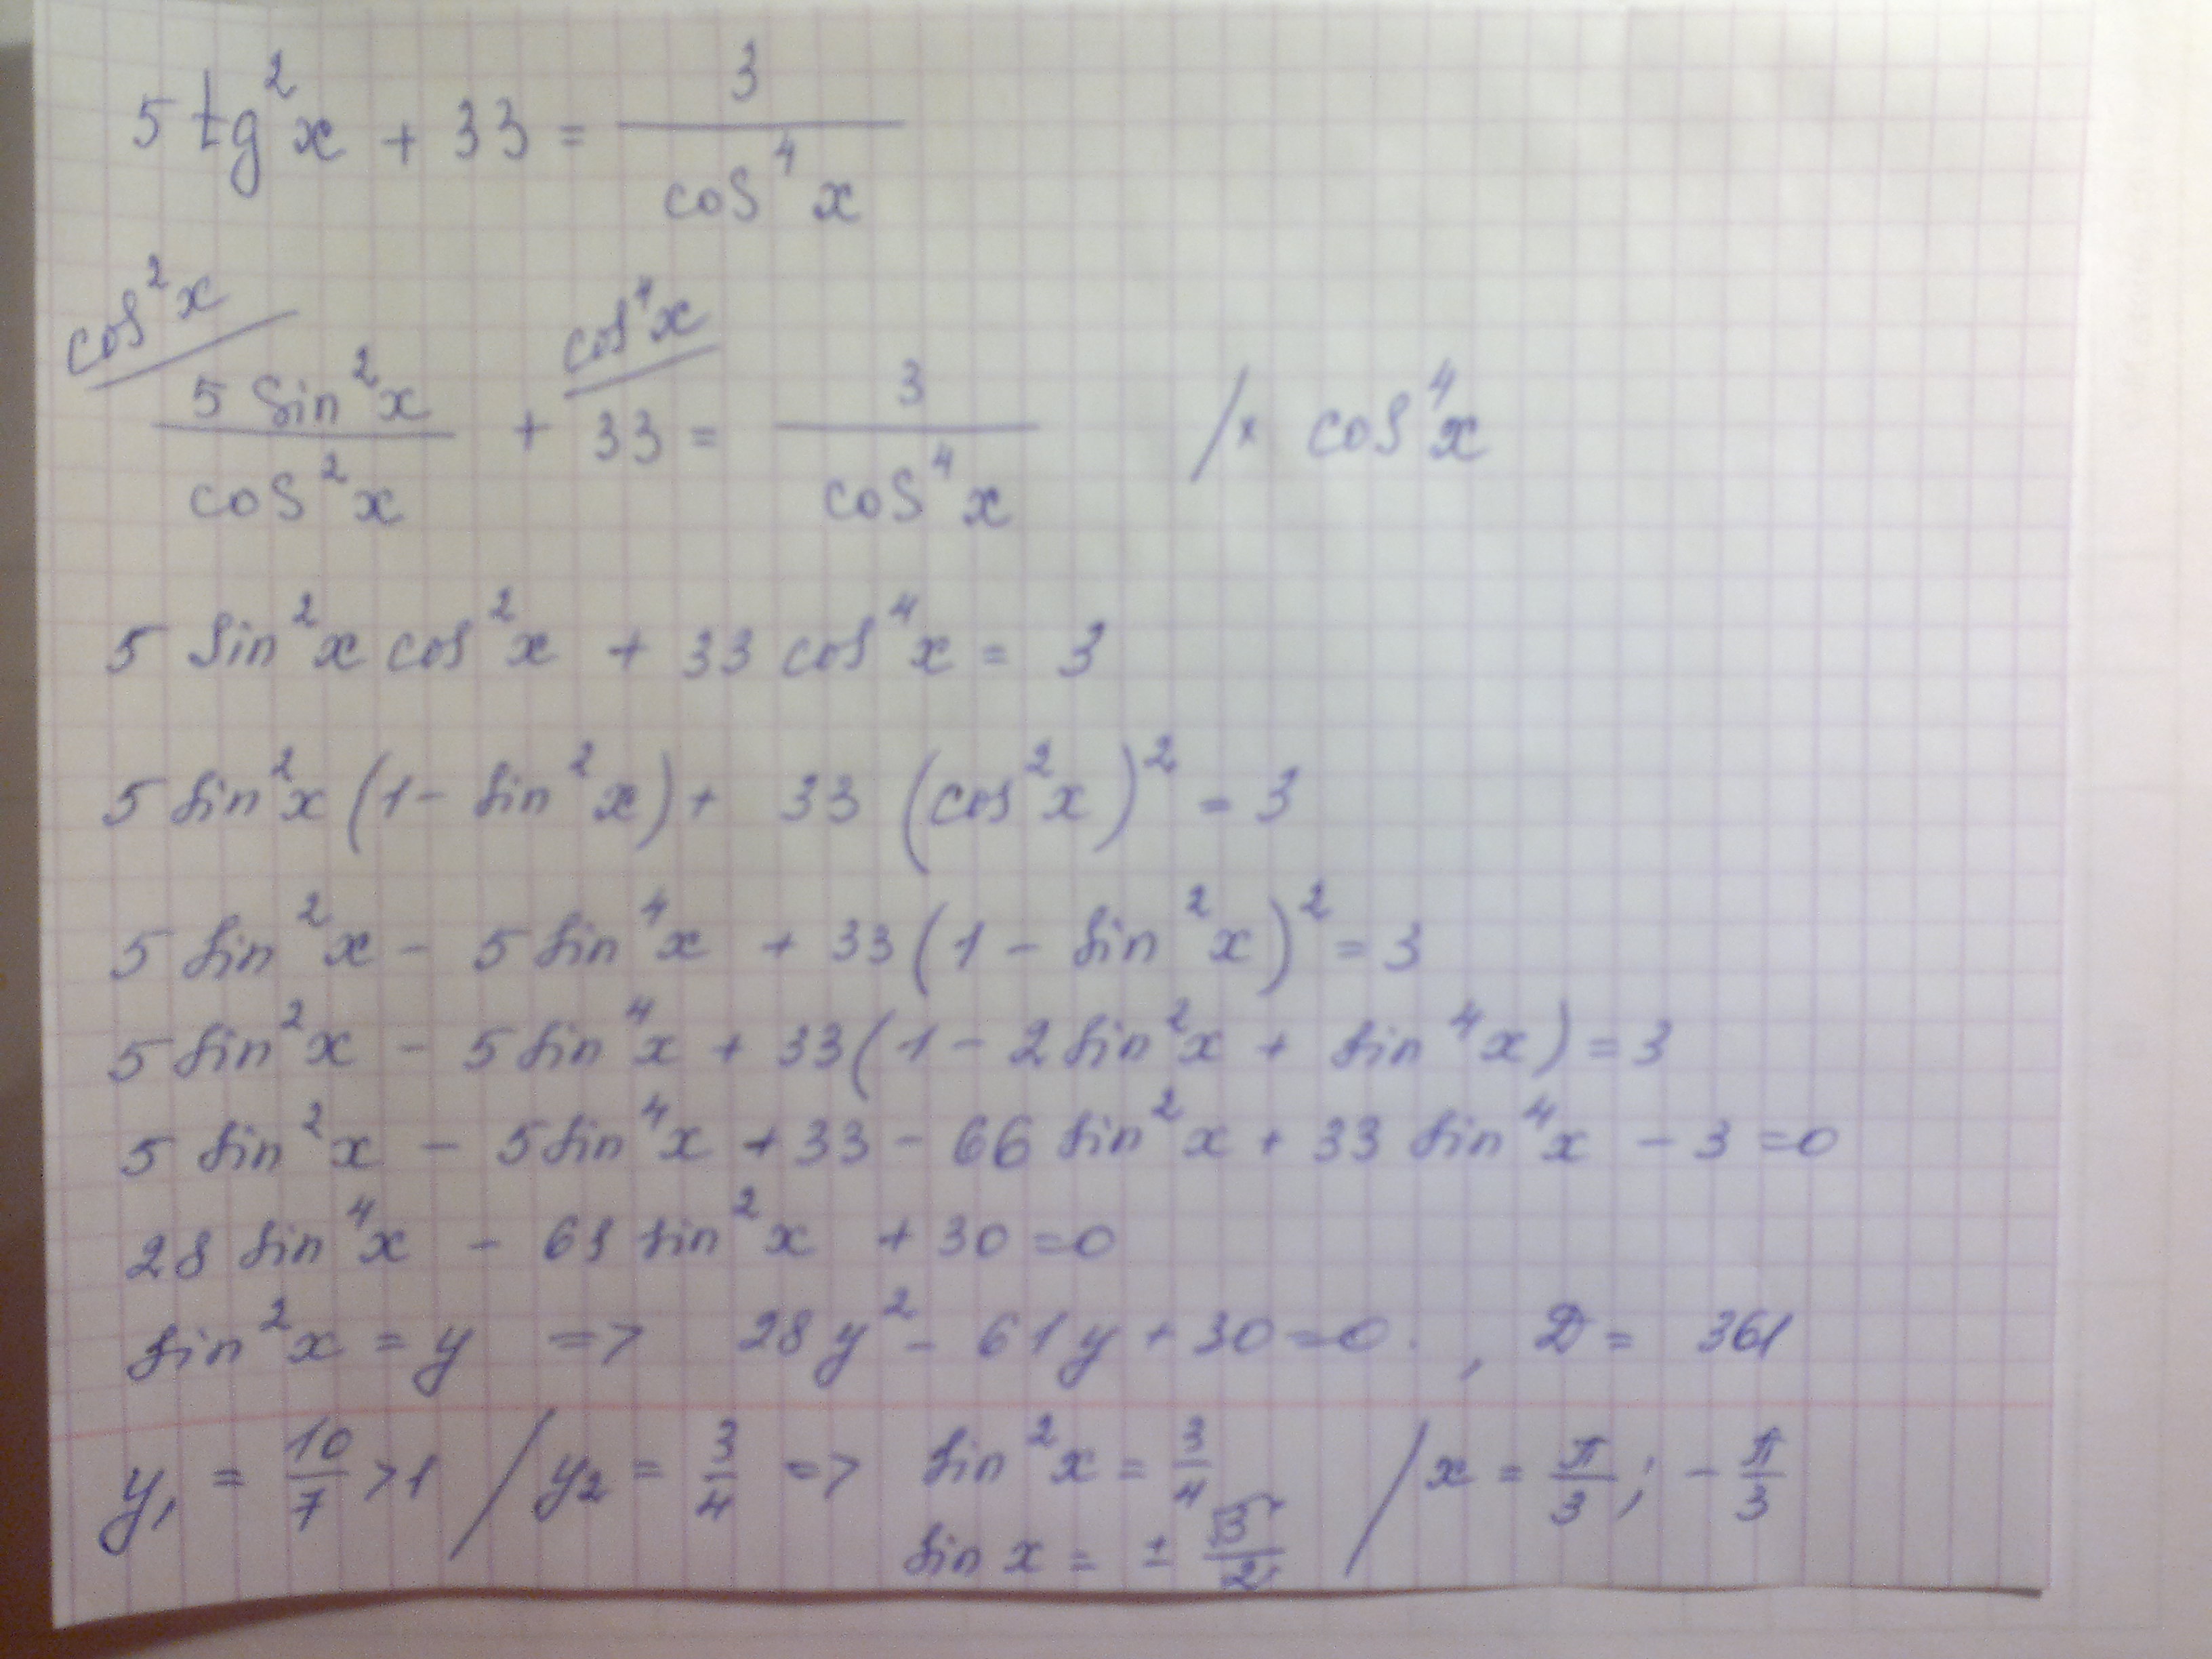 5 tg²x + 33 = 3/cos⁴x
cos²x/ 5 sin²x/cos²x + cos⁴x/ 33 = 3/cos⁴x /× cos⁴x
5 sin²x cos²x + 33 cos⁴x = 3
5 sin²x (1 - sin²x) + 33 (cos²x)² = 3
5 sin²x - 5 sin⁴x + 33 (1 - sin²x)² = 3
5 sin²x - 5 sin⁴x + 33 (1 - 2 sin²x + sin⁴x) = 3
5 sin²x - 5 sin⁴x + 33 - 66 sin²x + 33 sin⁴x - 3 = 0
28 sin⁴x - 61 sin²x + 30 = 0
sin²x = y => 28y² - 61y + 30 = 0. , D = 361
y₁ = 10/7 > 1 / y₂ = 3/4 => sin²x = 3/4 / x = π/3 ; - π/3
sin x = ± √3/2